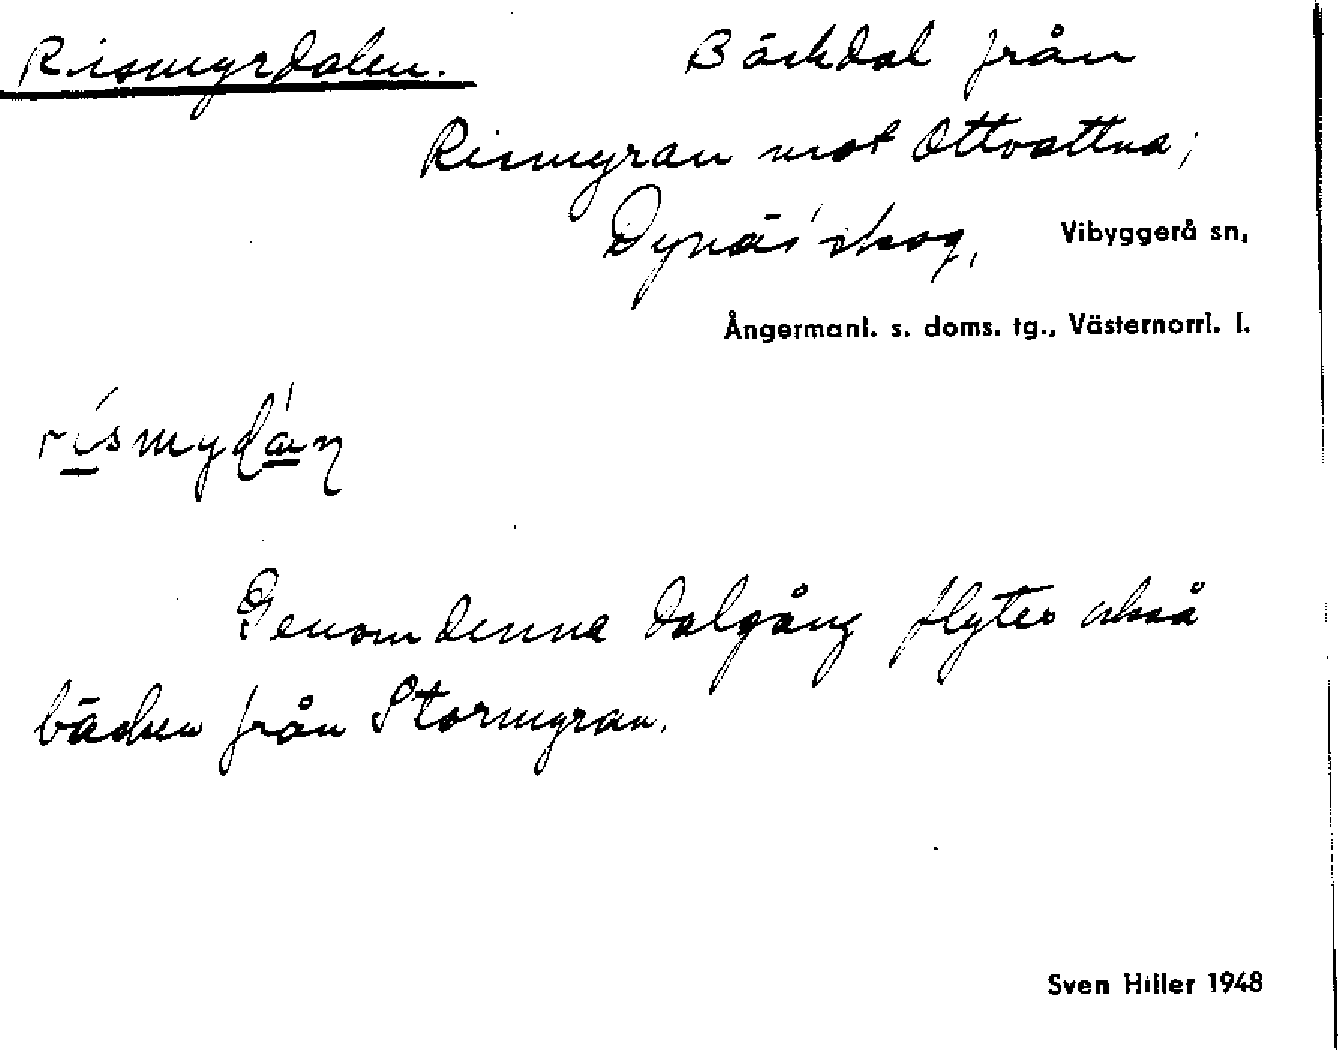 Rismyrdalen. Bäckdal från
Rismyran mot Ottvattna;
Dynäs' skog, Vibyggerå sn,
Ångermanl. s. doms. tg., Västernorrl. l.
Genom denna dalgång flyter också
bäcken från Stormyran.
Sven Hiller 1948